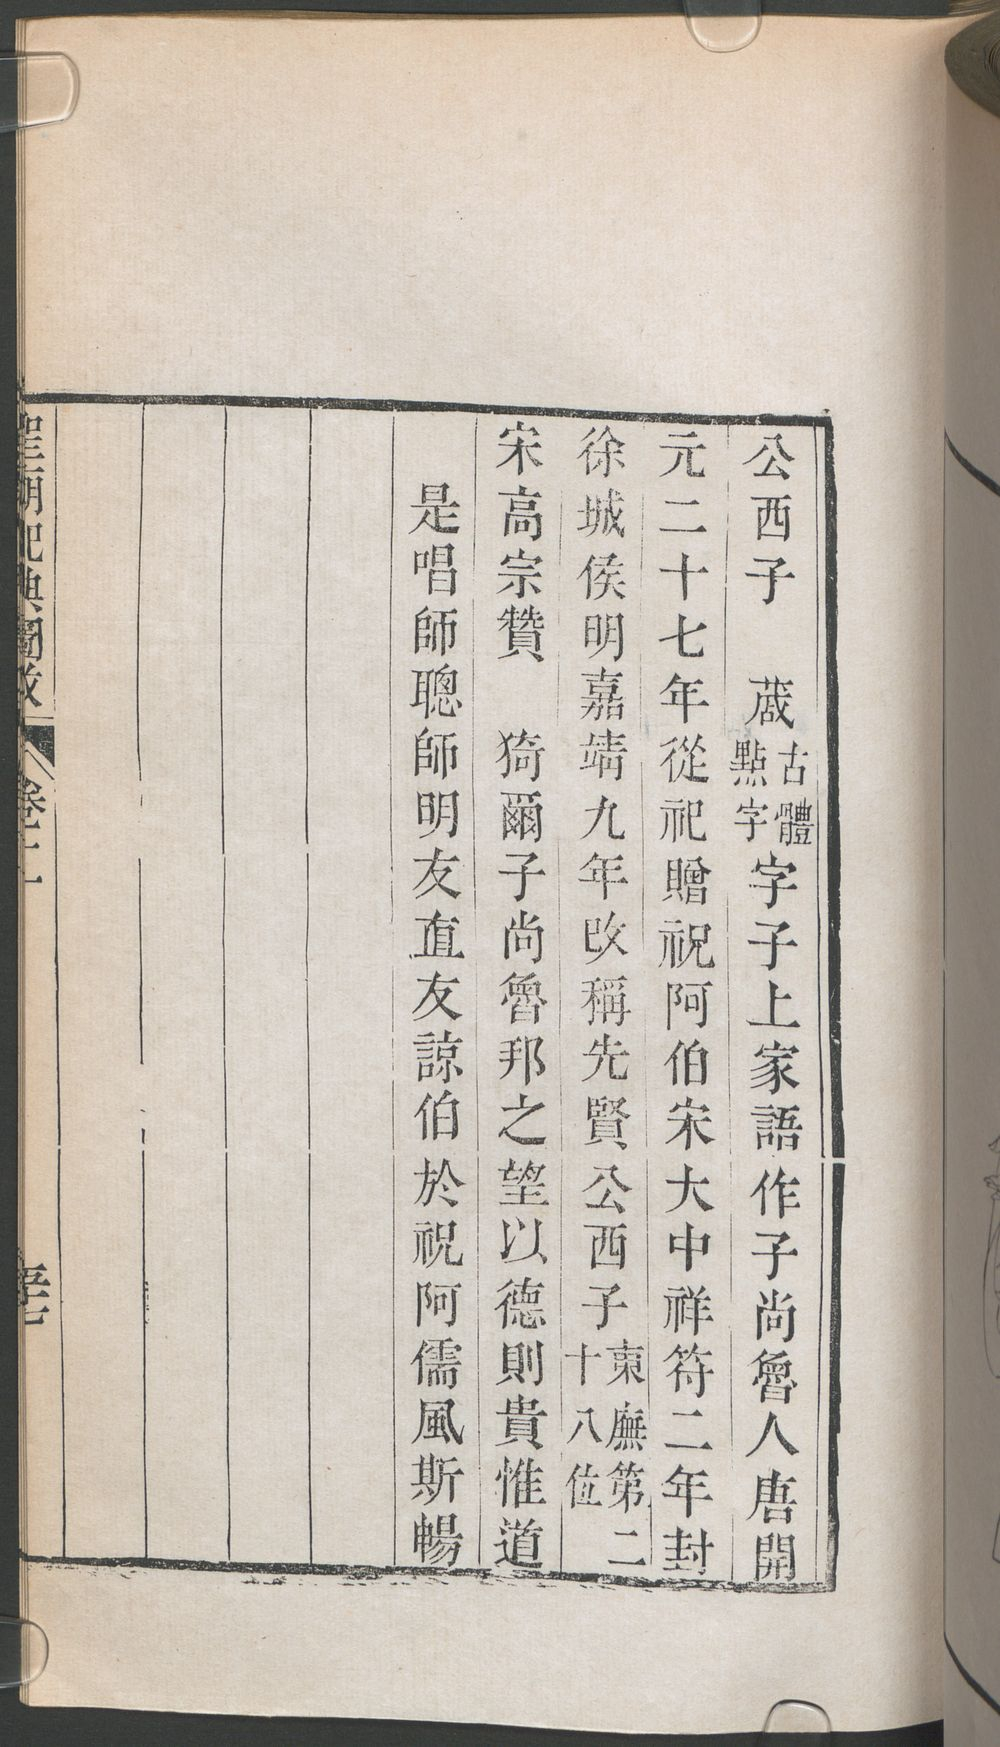 公西子　蒧古體點字字子上家語作子尚魯人唐開
元二十七年從祀贈祝阿伯宋大中祥符二年封
徐城侯明嘉靖九年改稱先賢公西子東廡第二十八位
宋高宗贊　猗爾子尚魯邦之望以德則貴惟道
是唱師聰師明友直友諒伯於祝阿儒風斯暢
聖廟祀典圖攷　卷二